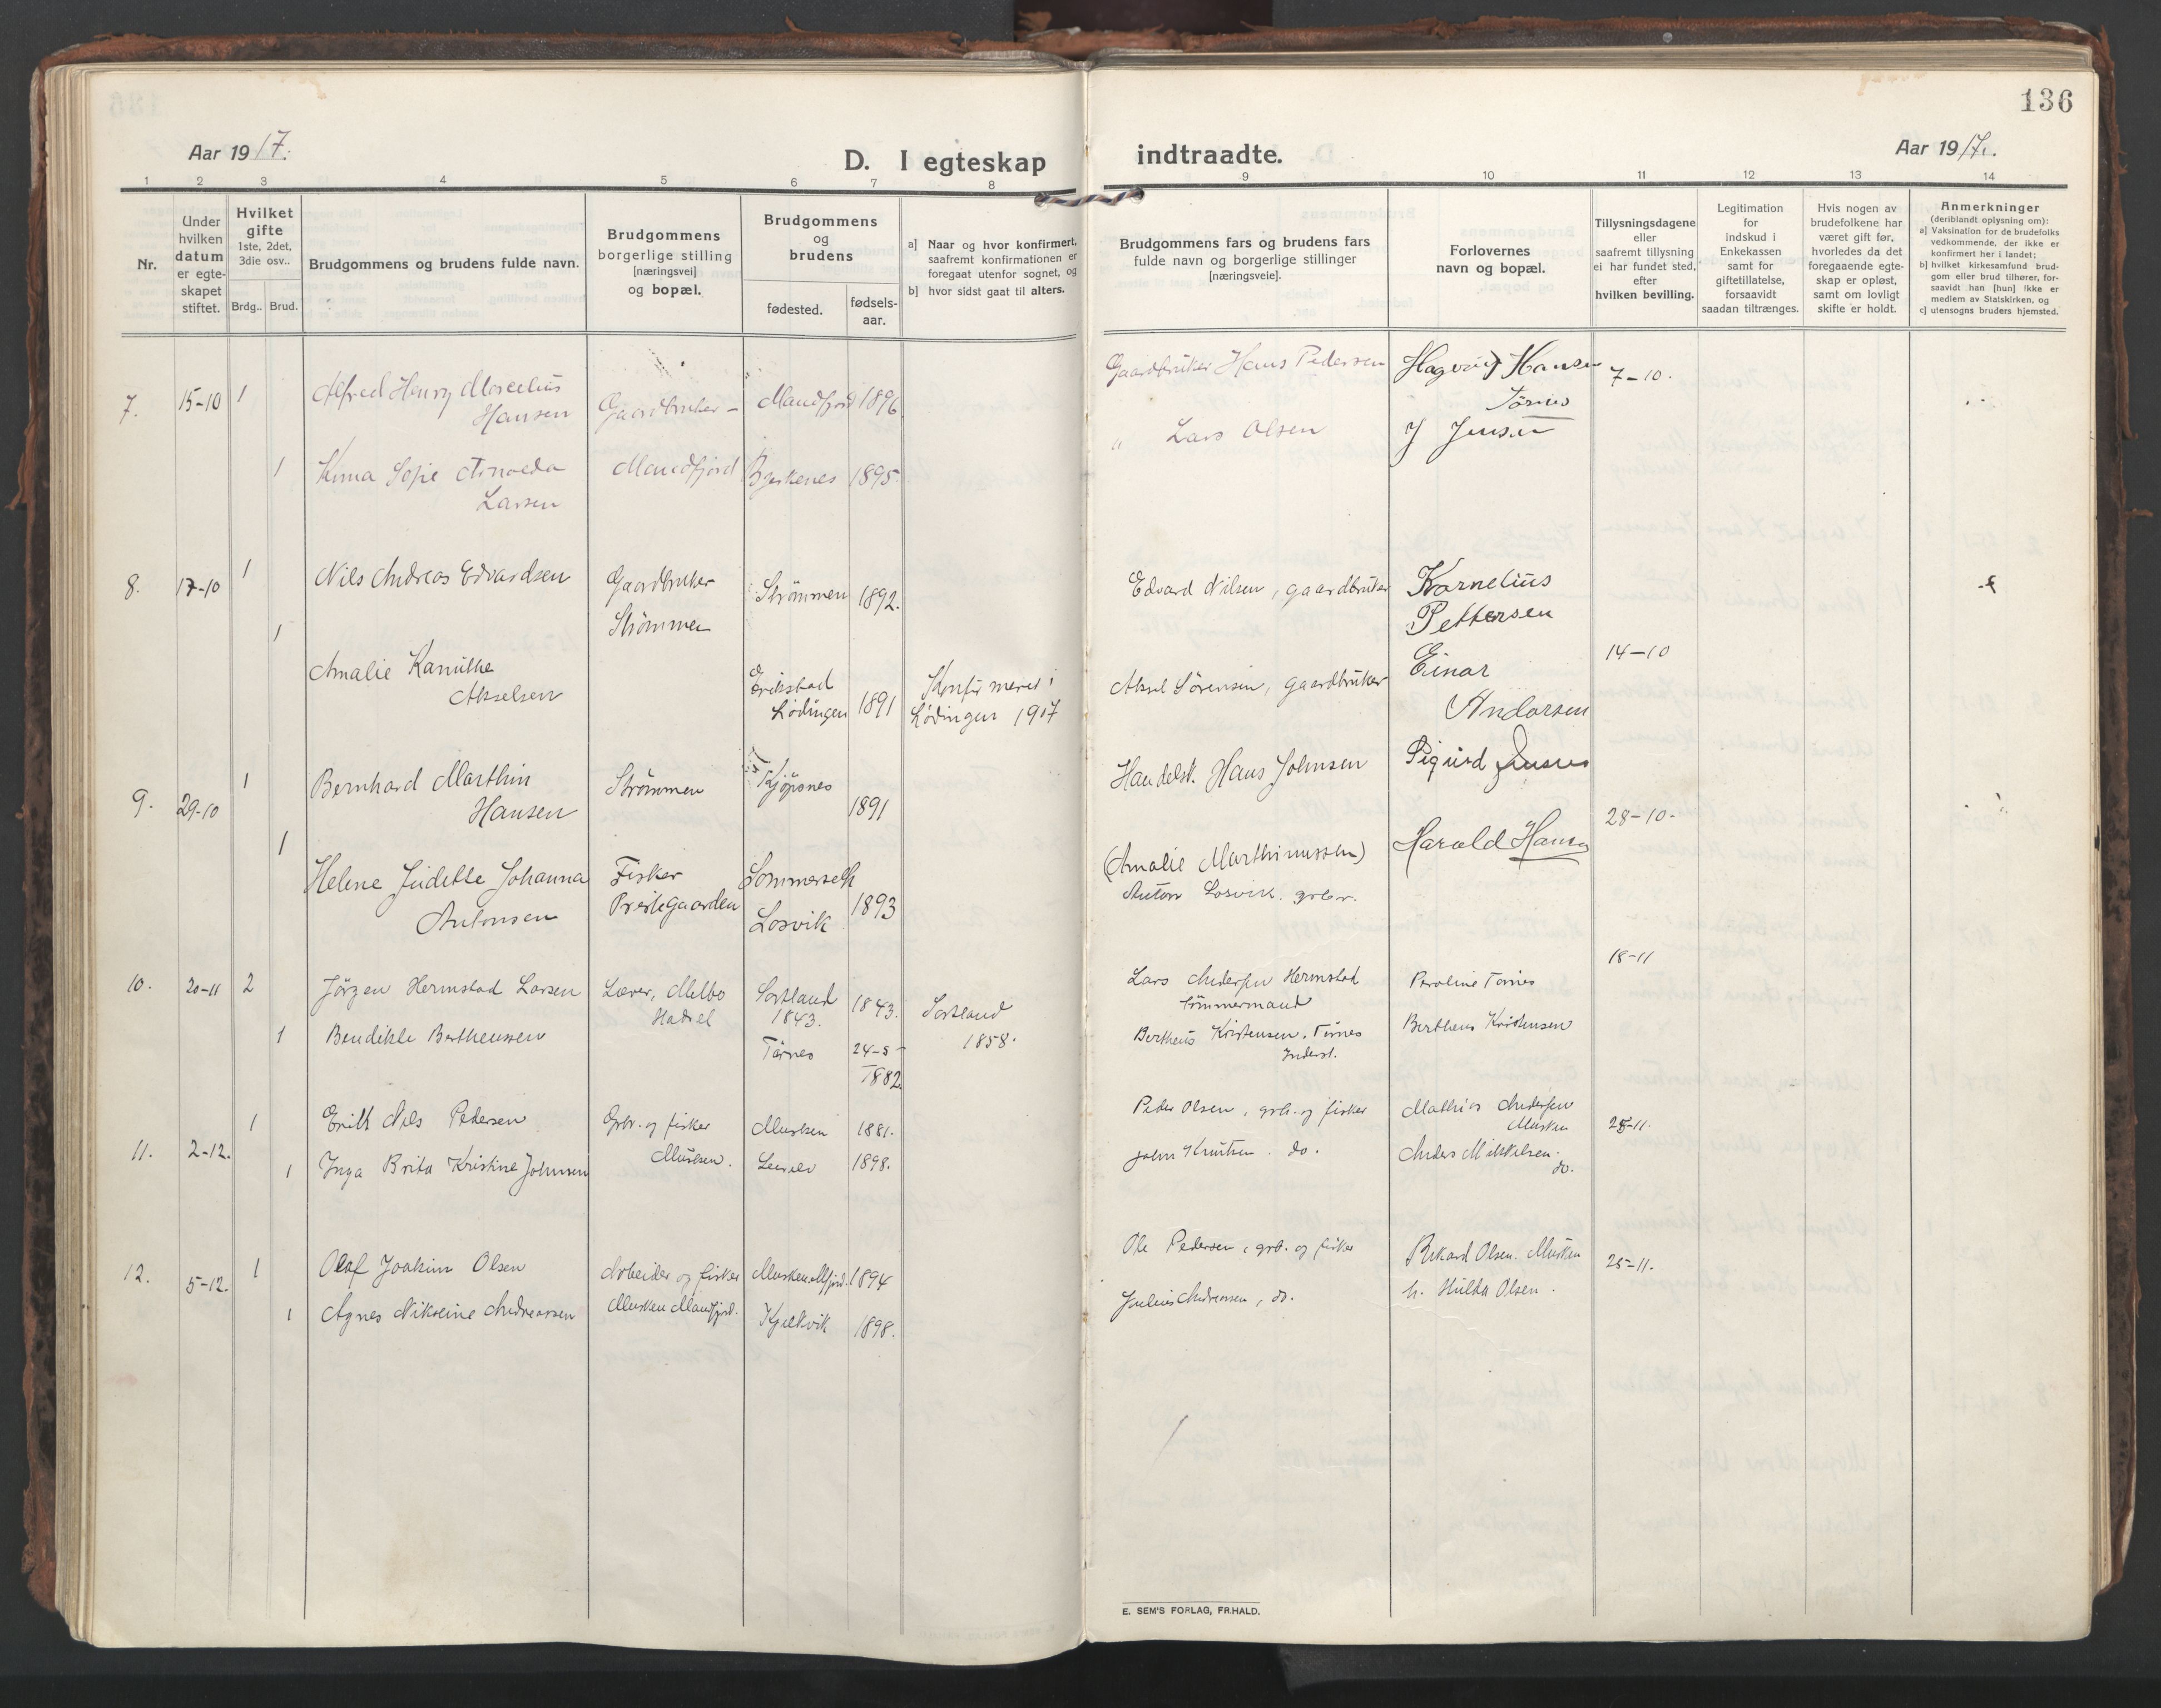 136
Aar 1917.
D. I egteskap
indtraadte.
Aar 1917.
1 2 3 4 5 6 7 8 9 10 11 12 13 14
Nr.
Under
hvilken
datum
er egte-
skapet
stiftet.
Hvilket
gifte
1ste, 2det,
3die osv..
Brdg.. Brud.
Brudgommens og brudens fulde navn.
Brudgommens
borgerlige stilling
[næringsvei]
og bopæl.
Brudgommens
og
brudens
fødested.
fødsels-
aar.
a] Naar og hvor konfirmert,
saafremt konfirmationen er
foregaat utenfor sognet, og
b] hvor sidst gaat til alters.
Brudgommens fars og brudens fars
fulde navn og borgerlige stillinger
[næringsveie].
Forlovernes
navn og bopæl.
Tillysningsdagene
eller
saafremt tillysning
ei har fundet sted,
efter
hvilken bevilling.
Legitimation
for
indskud i
Enkekassen
samt for
giftetillatelse,
forsaavidt
saadan tiltrænges.
Hvis nogen av
brudefolkene har
været gift før,
hvorledes da det
foregaaende egte-
skap er opløst,
samt om lovligt
skifte er holdt.
Anmerkninger
(deriblandt oplysning om):
a] Vaksination for de brudefolks
vedkommende, der ikke er
konfirmert her i landet;
b] hvilket kirkesamfund brud-
gom eller brud tilhører, for-
saavidt han [hun] ikke er
medlem av Statskirken, og
c] utensogns bruders hjemsted.
7. 15-10 1 Alfred Henry Marcelius
Hansen
Gaardbruker -
Mandfjord 1896
Gaardbruker Hans Pedersen
Hagvag Hansen
7-10.
Tørnes
1 Sofie
Larsen
Mandfjord
1895.
" Lars Olsen
J Jensen
8. 17-10 1 Nils Andreas Edvardsen
Gaardbruker
Strømmen
Strömmen 1892.
Edvard Nilsen, gaardbruker
Kornelius
Pettersen
14-10
1 Amalie
Akselsen
Erikstad
Lödingen 1891
Lödingen 1907
Aksel Sörensen, gaardbruker
Einar
Andorsen
9. 29-10 1 Bernhard Marthin
Hansen
Strömmen
Kjöpsnes
1891
Handelsk. Hans Johnsen
Sigurd
28-10-
(Amalie Marthinussen)
Harald Hansen
1 Helene Judette Johanna
Antonsen
Fisker
Prestegaarden
Losvik 1893
Anton Losvik. grbr.
10. 20-11 2 Jörgen Hermstad Larsen
Lærer, Melbo
Hadsel
Sortland
1843. 1843.
Sortland
1858.
Lars Andersen Hermstad
tömmermand
Peroline Tørnes
18-11
1 Bendikte Bertheussen
Tørnes 24-5-
1882
Bertheus Kristensen, Tørnes
Inderst.
Bertheus Kristensen
11. 2-12. 1 Erik Nils Pedersen
Grbr. og fisker
Musken.
Musken 1881.
Peder Olsen, grb. og fisker
Mathias Andersen
Musken
25-11.
1 Inga Brita Kristine Johnsen
1898.
John Knutsen. do.
Anders Mikkelsen.
do.
12. 5-12. 1 Olaf Joakim Olsen
Arbeider og fisker
Musken Mandfjord.
Musken Mfjord. 1894
Ole Pedersen, grb. og fisker
Rikard Olsen. Musken
25-11.
1 Agnes Nikoline Andreassen
Kjelkvik 1898.
Julius Andreassen, do.
h. Hulda Olsen.
E. SEM'S FORLAG, FR.HALD.